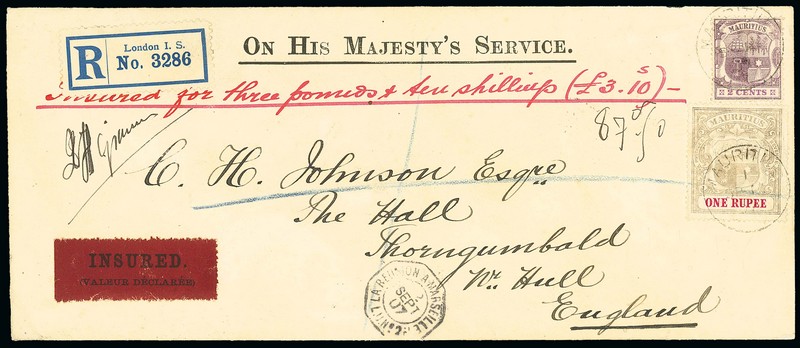 R
London I. S.
No. 3286
ON HIS MAJESTY'S SERVICE.
Insured for three pounds & ten shillings (£3.10s)-
87
C. H. Johnson Esqre
The Hall
Thorngumbald
Nr. Hull
England
INSURED.
(VALEUR DÉCLARÉE)
LA REUNION A MARSEILLE
2
SEPT
07
MAURITIUS
2 CENTS
MAURITIUS
MAURITIUS
ONE RUPEE
MAURITIUS